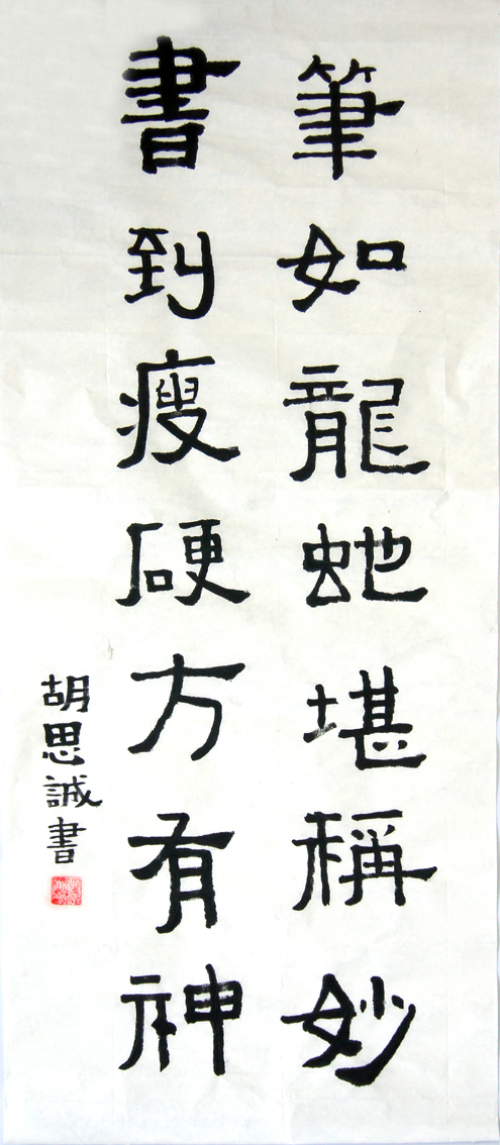 筆如龍虵堪稱妙
書到瘦硬方有神
胡思誠書